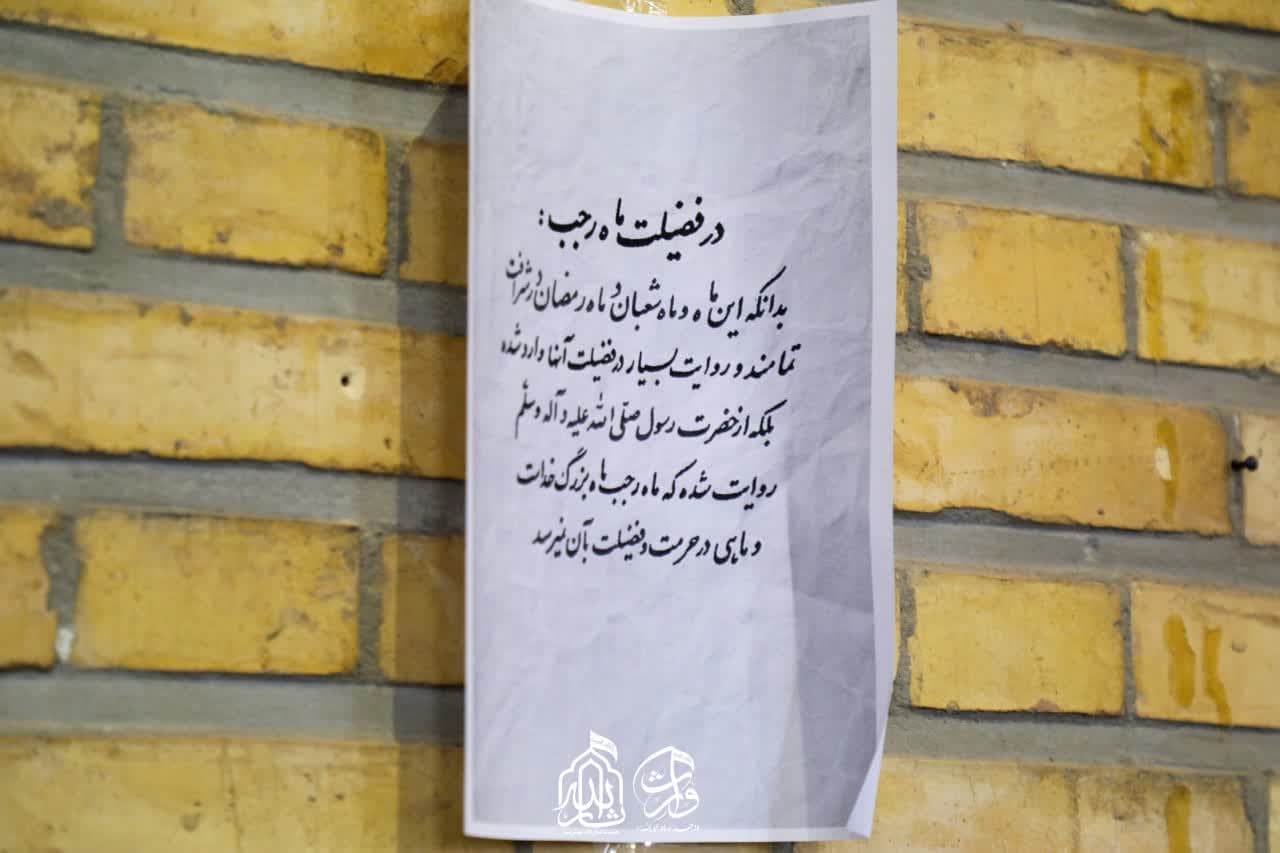 در فضیلت ماه رجب :
بدانکه این ماه و ماه شعبان و ماه رمضان در شرافت
تمامند و روایت بسیار در فضیلت آنها وارد شده
بلکه از حضرت رسول صلّی الله علیه و آله و سلّم
روایت شده که ماه رجب ماه بزرگ خداست
و ماهی در حرمت و فضیلت بآن نمیرسد
ثارالله
وارث